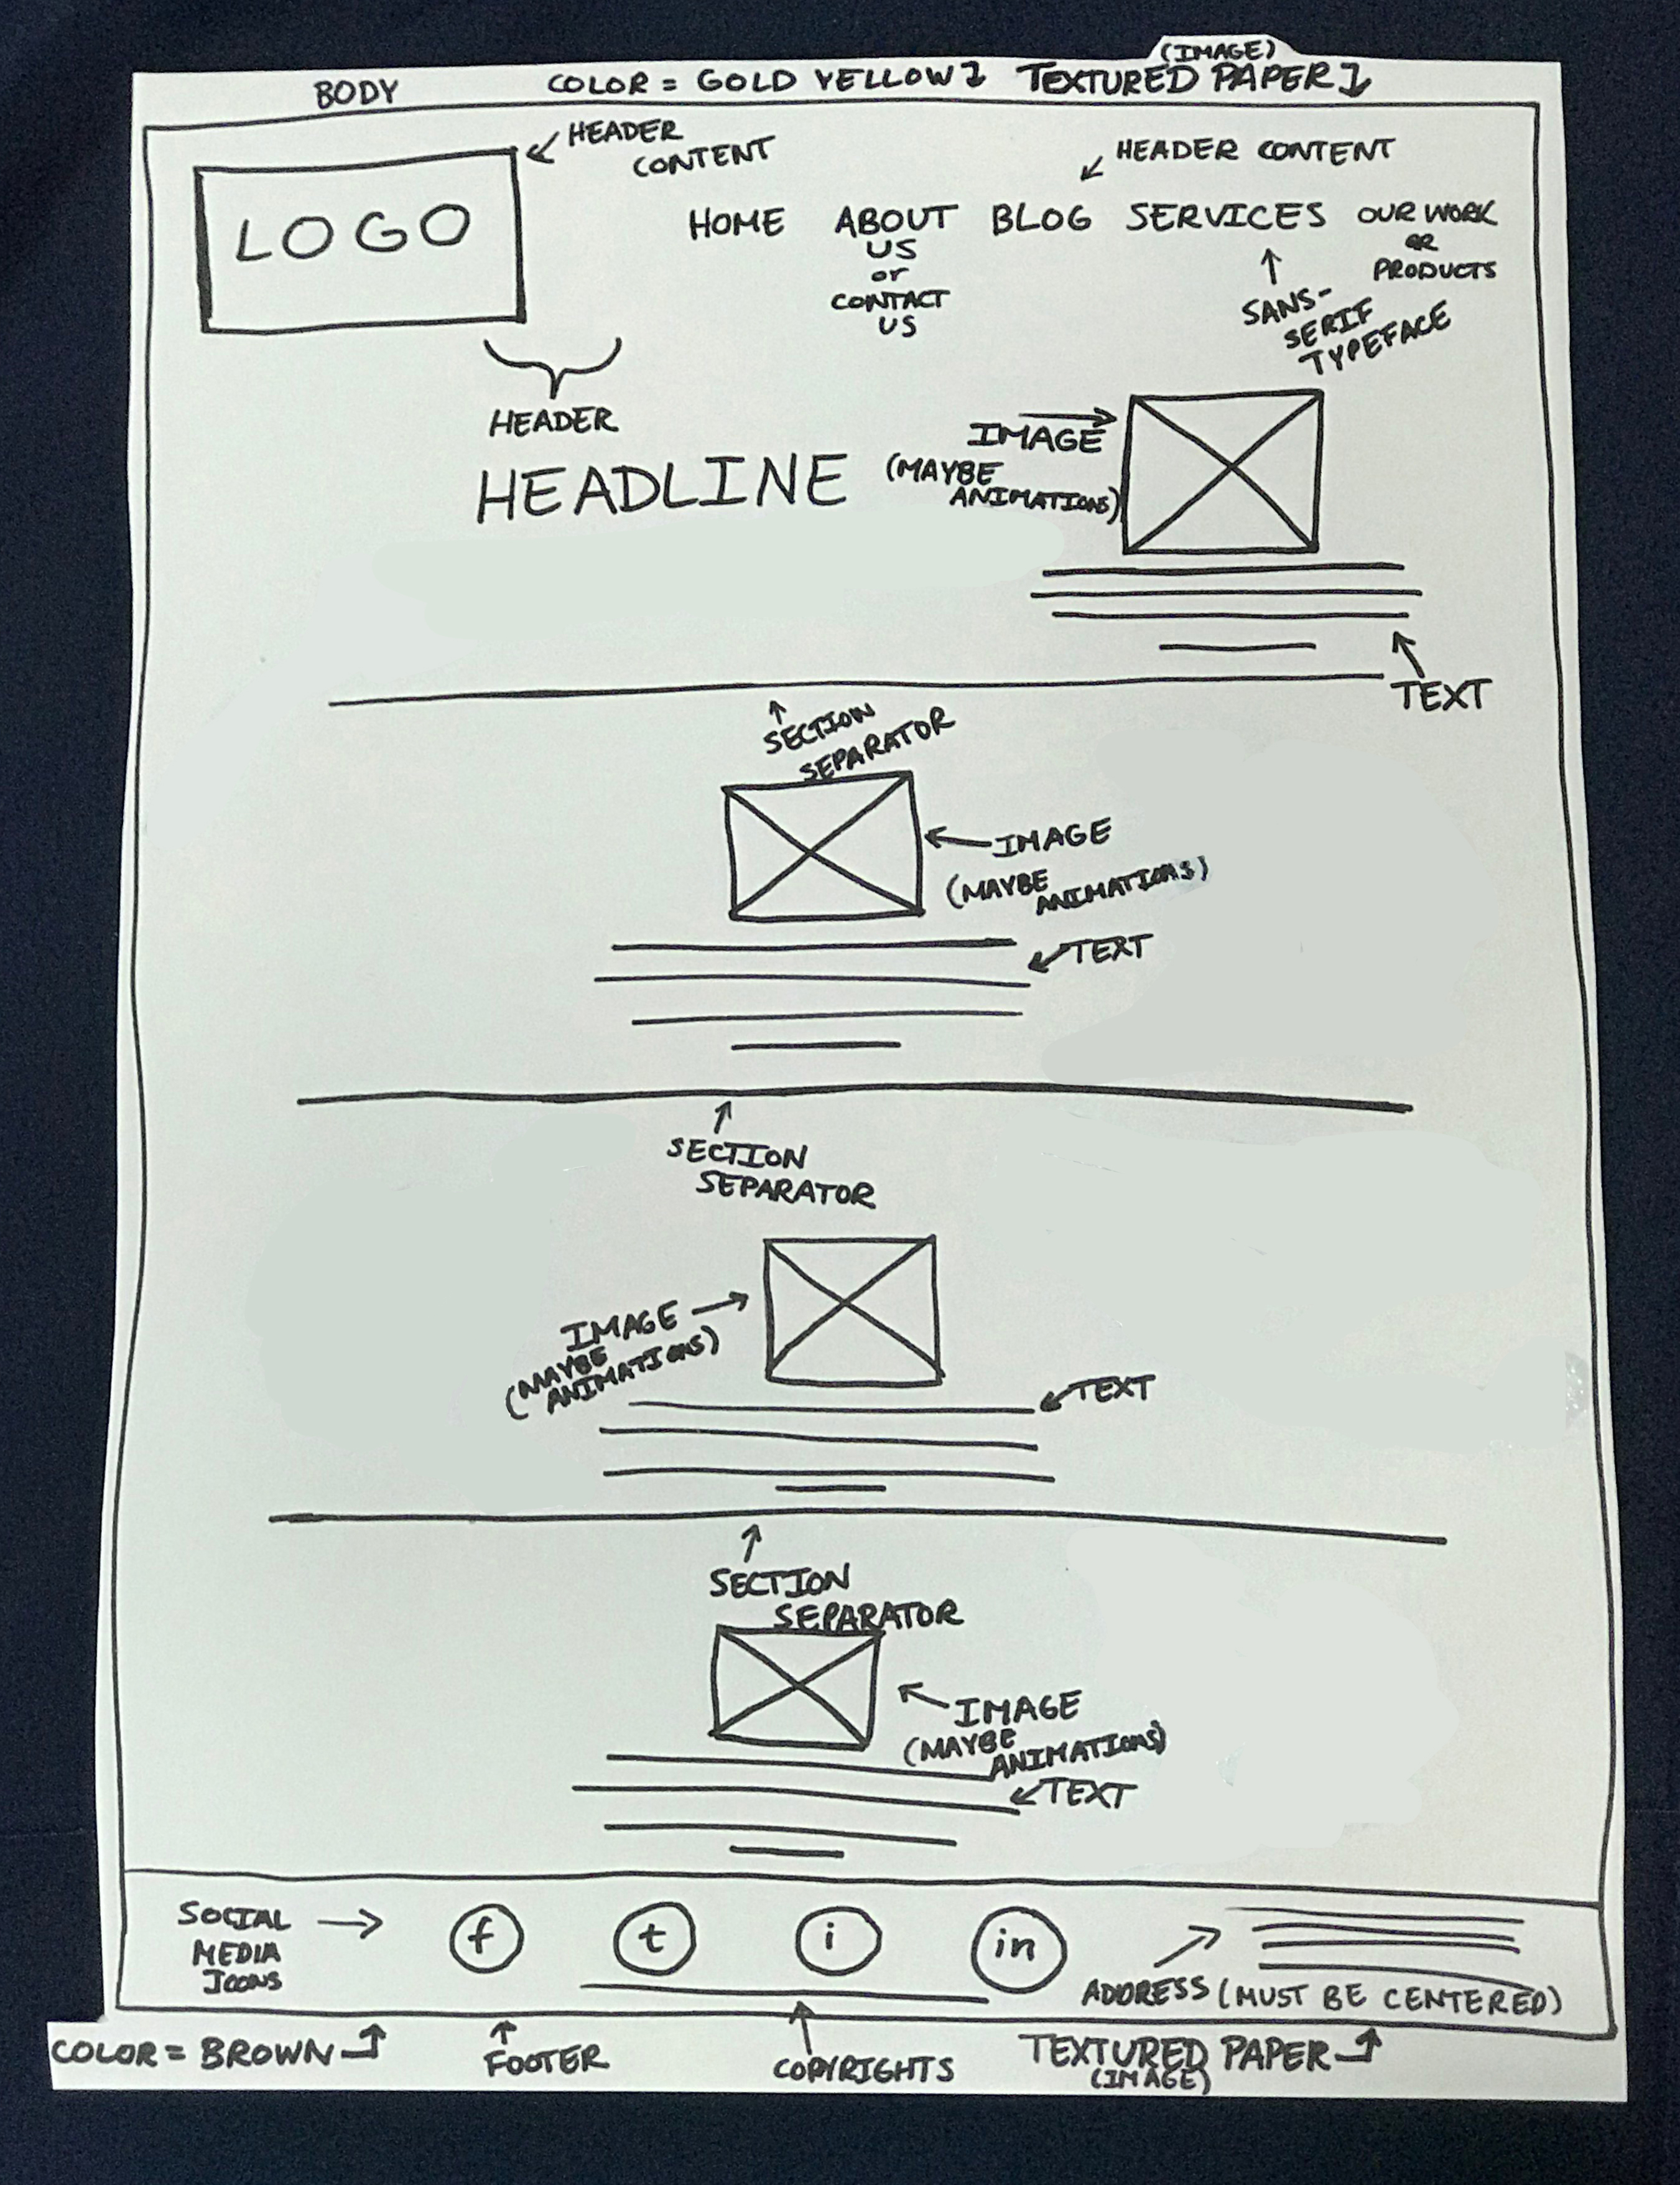 (IMAGE)
BODY COLOR = GOLD YELLOW TEXTURED PAPER
HEADER
CONTENT
HEADER CONTENT
LOGO
HOME ABOUT BLOG SERVICES OUR WORK
US
or
CONTACT
US
OR
PRODUCTS
SANS-
SERIF
TYPEFACE
HEADER
HEADLINE
IMAGE
(MAYBE
ANIMATIONS)
TEXT
SECTION
SEPARATOR
IMAGE
(MAYBE
ANIMATIONS)
TEXT
SECTION
SEPARATOR
IMAGE
(MAYBE
ANIMATIONS)
TEXT
SECTION
SEPARATOR
IMAGE
(MAYBE
ANIMATIONS)
TEXT
SOCIAL
MEDIA
ICONS
f t i in
ADDRESS (MUST BE CENTERED)
COLOR = BROWN
FOOTER
COPYRIGHTS
TEXTURED PAPER
(IMAGE)